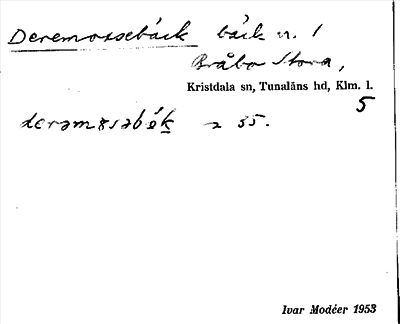 Deremossebäck bäck n. 1
Bråbo Stora,
Kristdala sn, Tunaläns hd, Klm. l.
5
35.
Ivar Modéer 1953